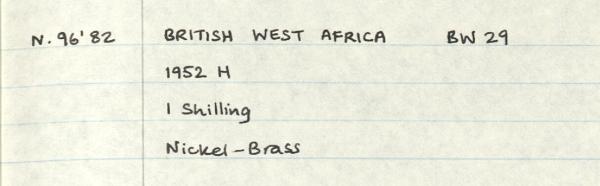 N. 96'82 BRITISH WEST AFRICA BW 29
1952 H
1 Shilling
Nickel-Brass